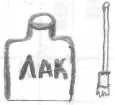 ЛАК